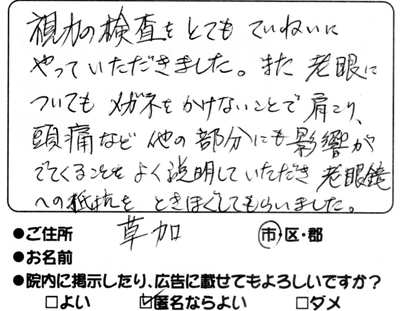 視力の検査をとてもていねいに
やっていただきました。また老眼に
ついてもメガネをかけないことで肩こり、
頭痛など他の部分にも影響が
でてくることをよく説明していただき老眼鏡
への抵抗をときほぐしてもらいました。
●ご住所 草加 市・区・郡
●お名前
●院内に掲示したり、広告に載せてもよろしいですか？
□よい ☑匿名ならよい □ダメ